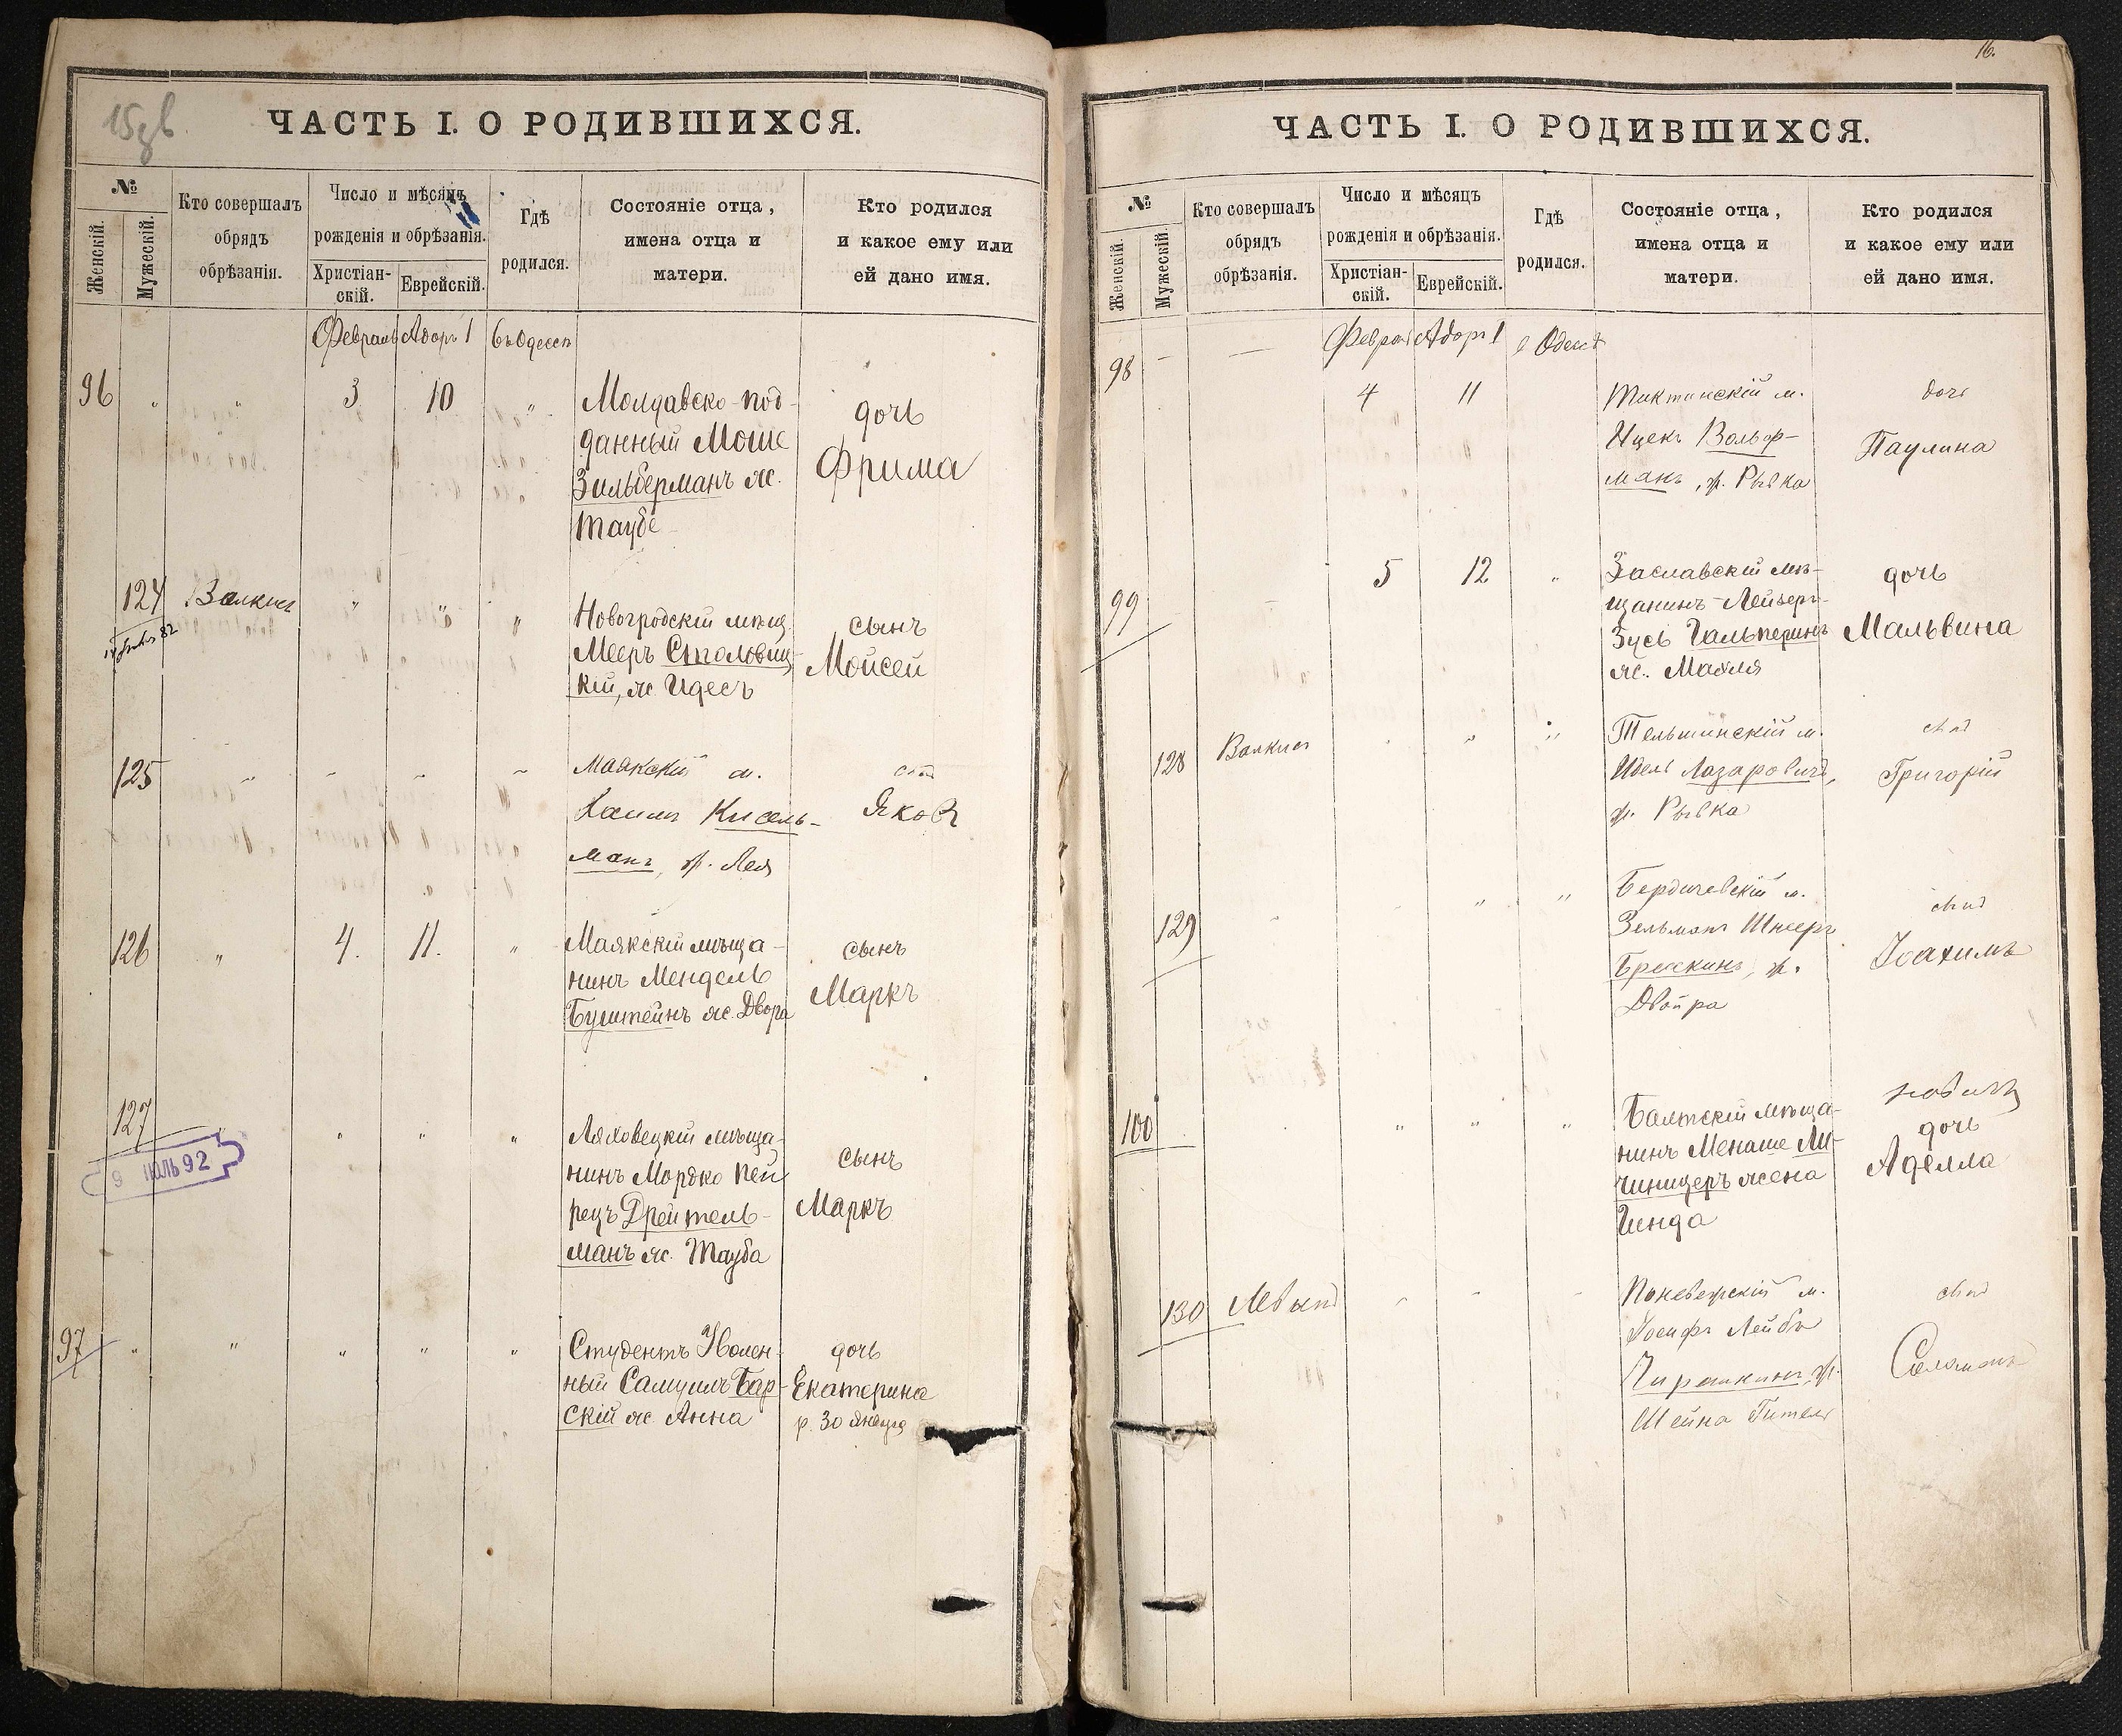 ЧАСТЬ I. О РОДИВШИХСЯ.
№
Женскій.
Мужескій.
Кто совершалъ
обрядъ
обрѣзанія.
Число и мѣсяцъ
рожденія и обрѣзанія.
Христіан-
скій.
Еврейскій.
Гдѣ
родился.
Состояніе отца,
имена отца и
матери.
Кто родился
и какое ему или
ей дано имя.
Февраль Адоръ 1 въ Одессѣ
96 " " 3 10 "
Молдавско-под-
данный Моше
Зильберманъ ж.
Таубе
дочь
Фрима
124 Валкин " " "
Новогродскій мѣщ.
Мееръ Столовиц-
кій, ж. Идесъ
сынъ
Мойсей
125
Маякскій м.
Хаимъ Кисель-
манъ, ж. Лея
сынъ
Яковъ
126 " 4. 11. "
Маякскій мѣща-
нинъ Мендель
Бумштейнъ ж. Двора
сынъ
Маркъ
127 " " " "
9 ИЮЛЬ 92
Ляховецкій мѣща-
нинъ Мордко Пей
рецъ Дрейтель-
манъ ж. Тауба
сынъ
Маркъ
97 " " " " "
Студентъ
ный Самуилъ Бар-
скій ж. Анна
дочь
Екатерина
р. 30 Января
16.
ЧАСТЬ I. О РОДИВШИХСЯ.
№
Женскій.
Мужескій.
Кто совершалъ
обрядъ
обрѣзанія.
Число и мѣсяцъ
рожденія и обрѣзанія.
Христіан-
скій.
Еврейскій.
Гдѣ
родился.
Состояніе отца,
имена отца и
матери.
Кто родился
и какое ему или
ей дано имя.
Феврал Адоръ 1 в Одессѣ
98 4 11
Тиктинскій м.
Ицекъ Вольф-
манъ, ж. Рывка
дочь
Паулина
99 5 12 "
Заславскій мѣ-
щанинъ Лейзеръ-
Зусь Гальперинъ
ж. Махля
дочь
Мальвина
128 Валкин " " "
Тельшинскій м.
Идель Лазаровичъ,
ж. Рывка
сынъ
Григорій
129
Бердичевскій м.
Зельманъ Шнеръ
ж.
Двойра
сынъ
Іоахимъ
100 " " "
Балтскій мѣща-
нинъ Менаше Ли-
чиницеръ жена
Гинда
дочь
Аделла
130
Поневежскій м.
Іосифъ Лейба
ж.
Шейна Гитель
сынъ
Соломонъ